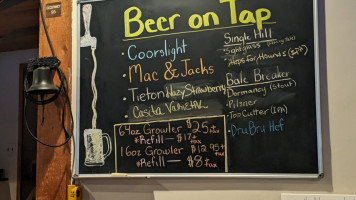 Beer on Tap
Coorslight
Mac & Jacks
Tieton Hazy Strawberry
Casita
64oz Growler $25
*Refill — $17+
16oz Growler $12.95+
*Refill — $8+tax
Single Hill
Hops for Hounds
Bale Breaker
Dormancy (stout)
Pilsner
TopCutter (IPA)
DruBru Hef